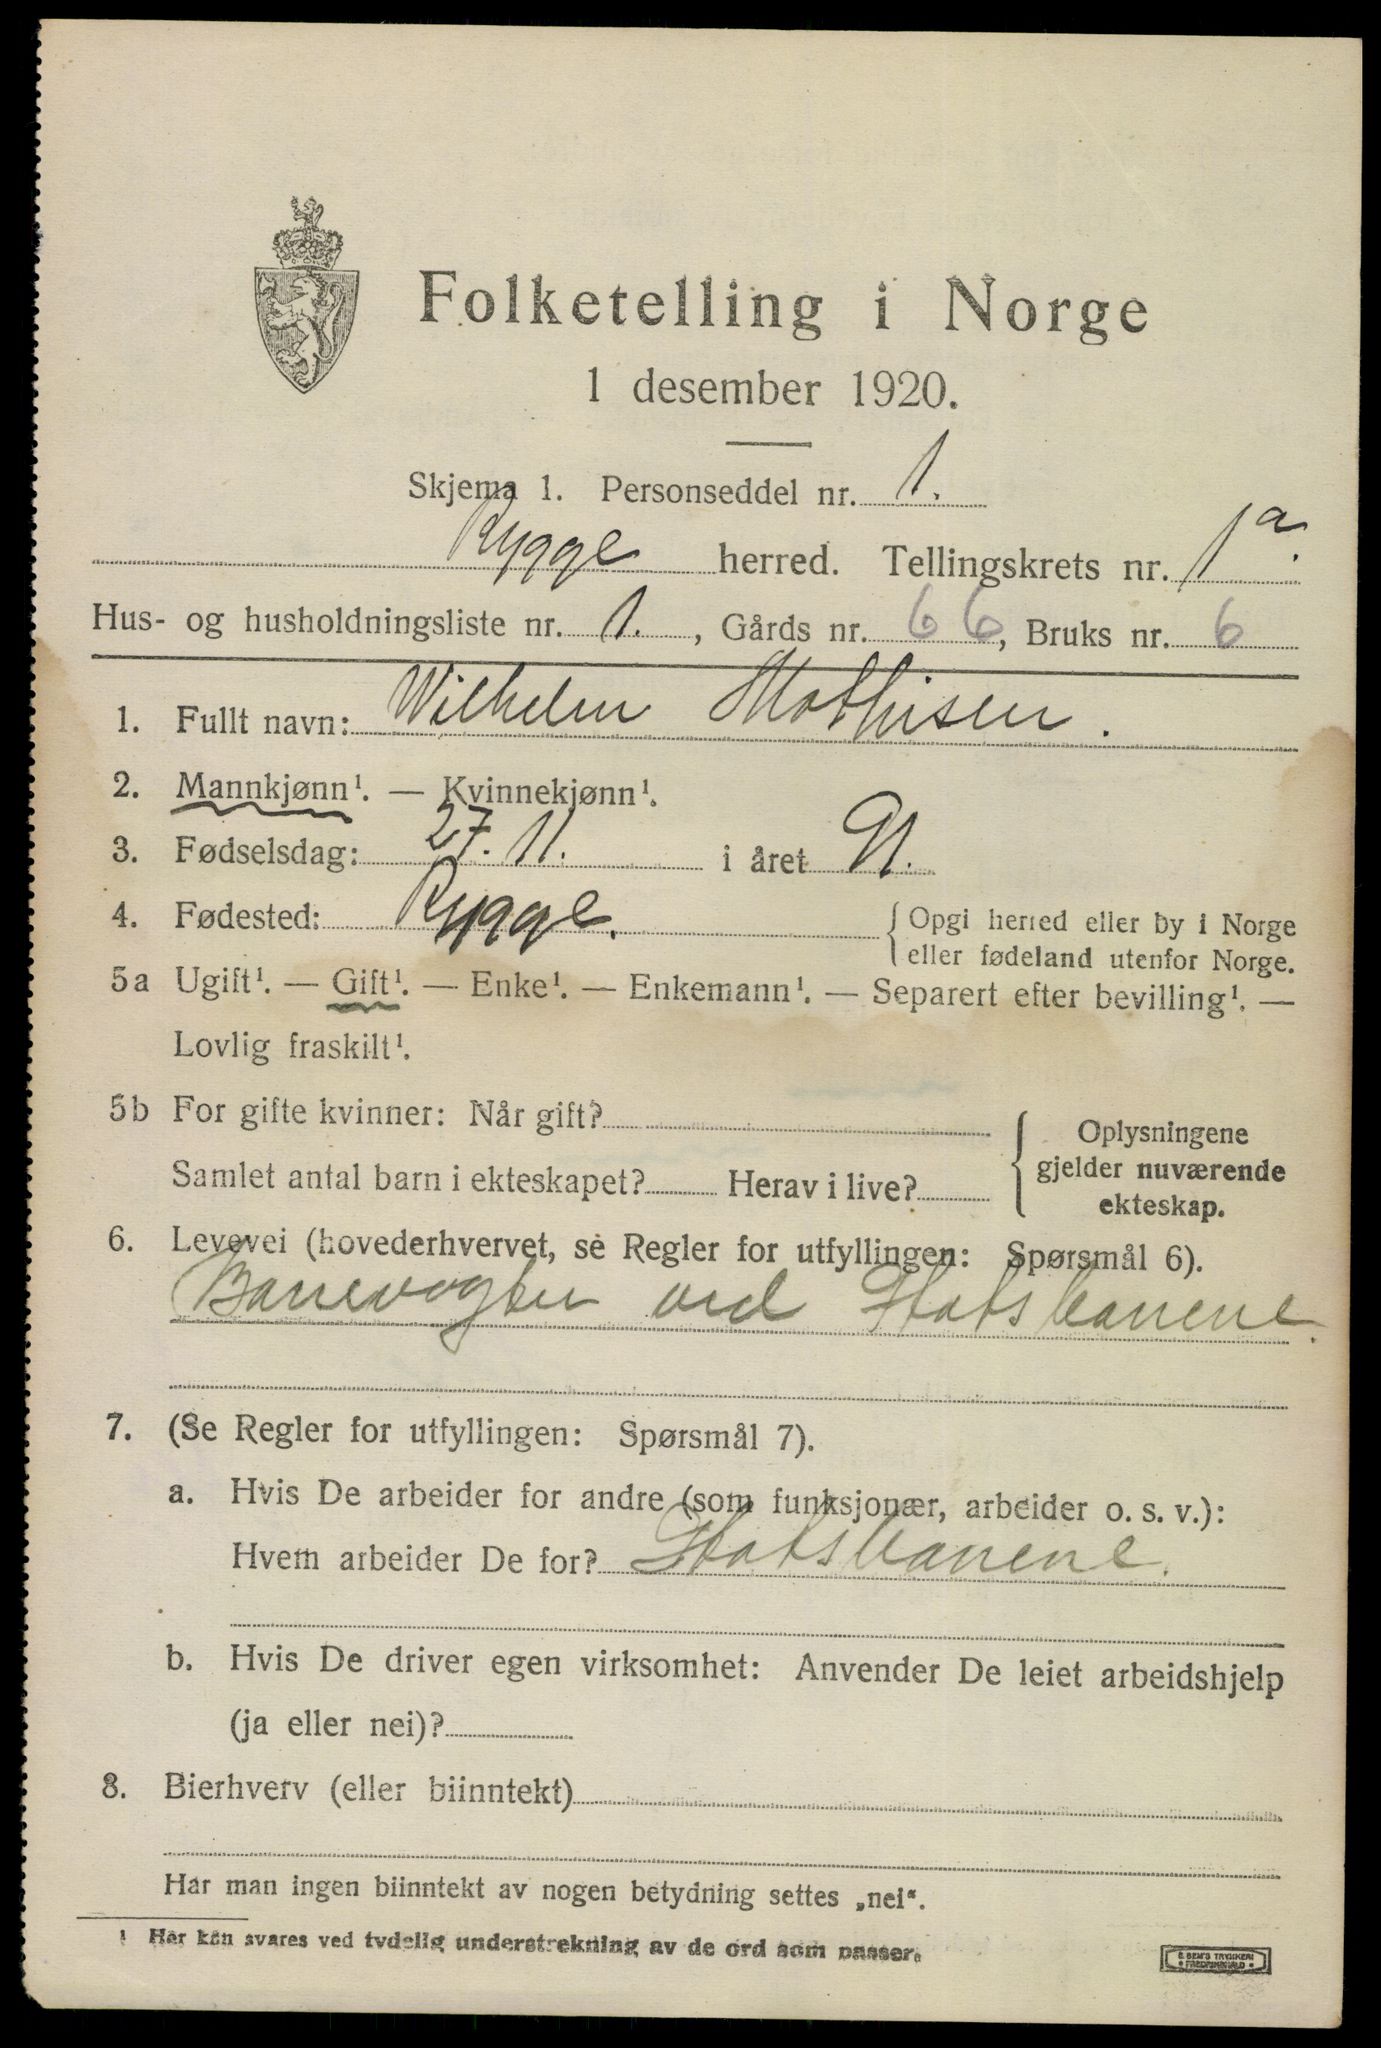 Folketelling i Norge
1 desember 1920.
Skjema 1. Personseddel nr. 1.
Rygge herred. Tellingskrets nr. 1a.
Hus- og husholdningsliste nr. 1., Gårds nr. 66, Bruks nr. 6
1. Fullt navn: Wilhelm Mathisen.
2. Mannkjønn¹. — Kvinnekjønn¹.
3. Fødselsdag: 27. 11. i året 91.
4. Fødested: Rygge. { Opgi herred eller by i Norge
eller fødeland utenfor Norge.
5a Ugift¹. — Gift¹. — Enke¹. — Enkemann¹. — Separert efter bevilling¹. —
Lovlig fraskilt¹.
5b For gifte kvinner: Når gift? { Oplysningene
gjelder nuværende
ekteskap.
Samlet antal barn i ekteskapet? Herav i live?
6. Levevei (hovederhvervet, se Regler for utfyllingen: Spørsmål 6).
Banevogter ved Statsbanene.
7. (Se Regler for utfyllingen: Spørsmål 7).
a. Hvis De arbeider for andre (som funksjonær, arbeider o. s. v.):
Hvem arbeider De for? Statsbanene.
b. Hvis De driver egen virksomhet: Anvender De leiet arbeidshjelp
(ja eller nei)?
8. Bierhverv (eller biinntekt)
Har man ingen biinntekt av nogen betydning settes „nei“.
1 Her kan svares ved tydelig understrekning av de ord som passer.
E. SEM'S TRYKKERI
• FREDRIKSHALD •